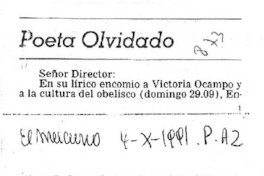 Poeta Olvidado
Señor Director:
En su lírico encomio a Victoria Ocampo y
a la cultura del obelisco (domingo 29.09), En-
El Mercurio 4-X-1991. P. A2